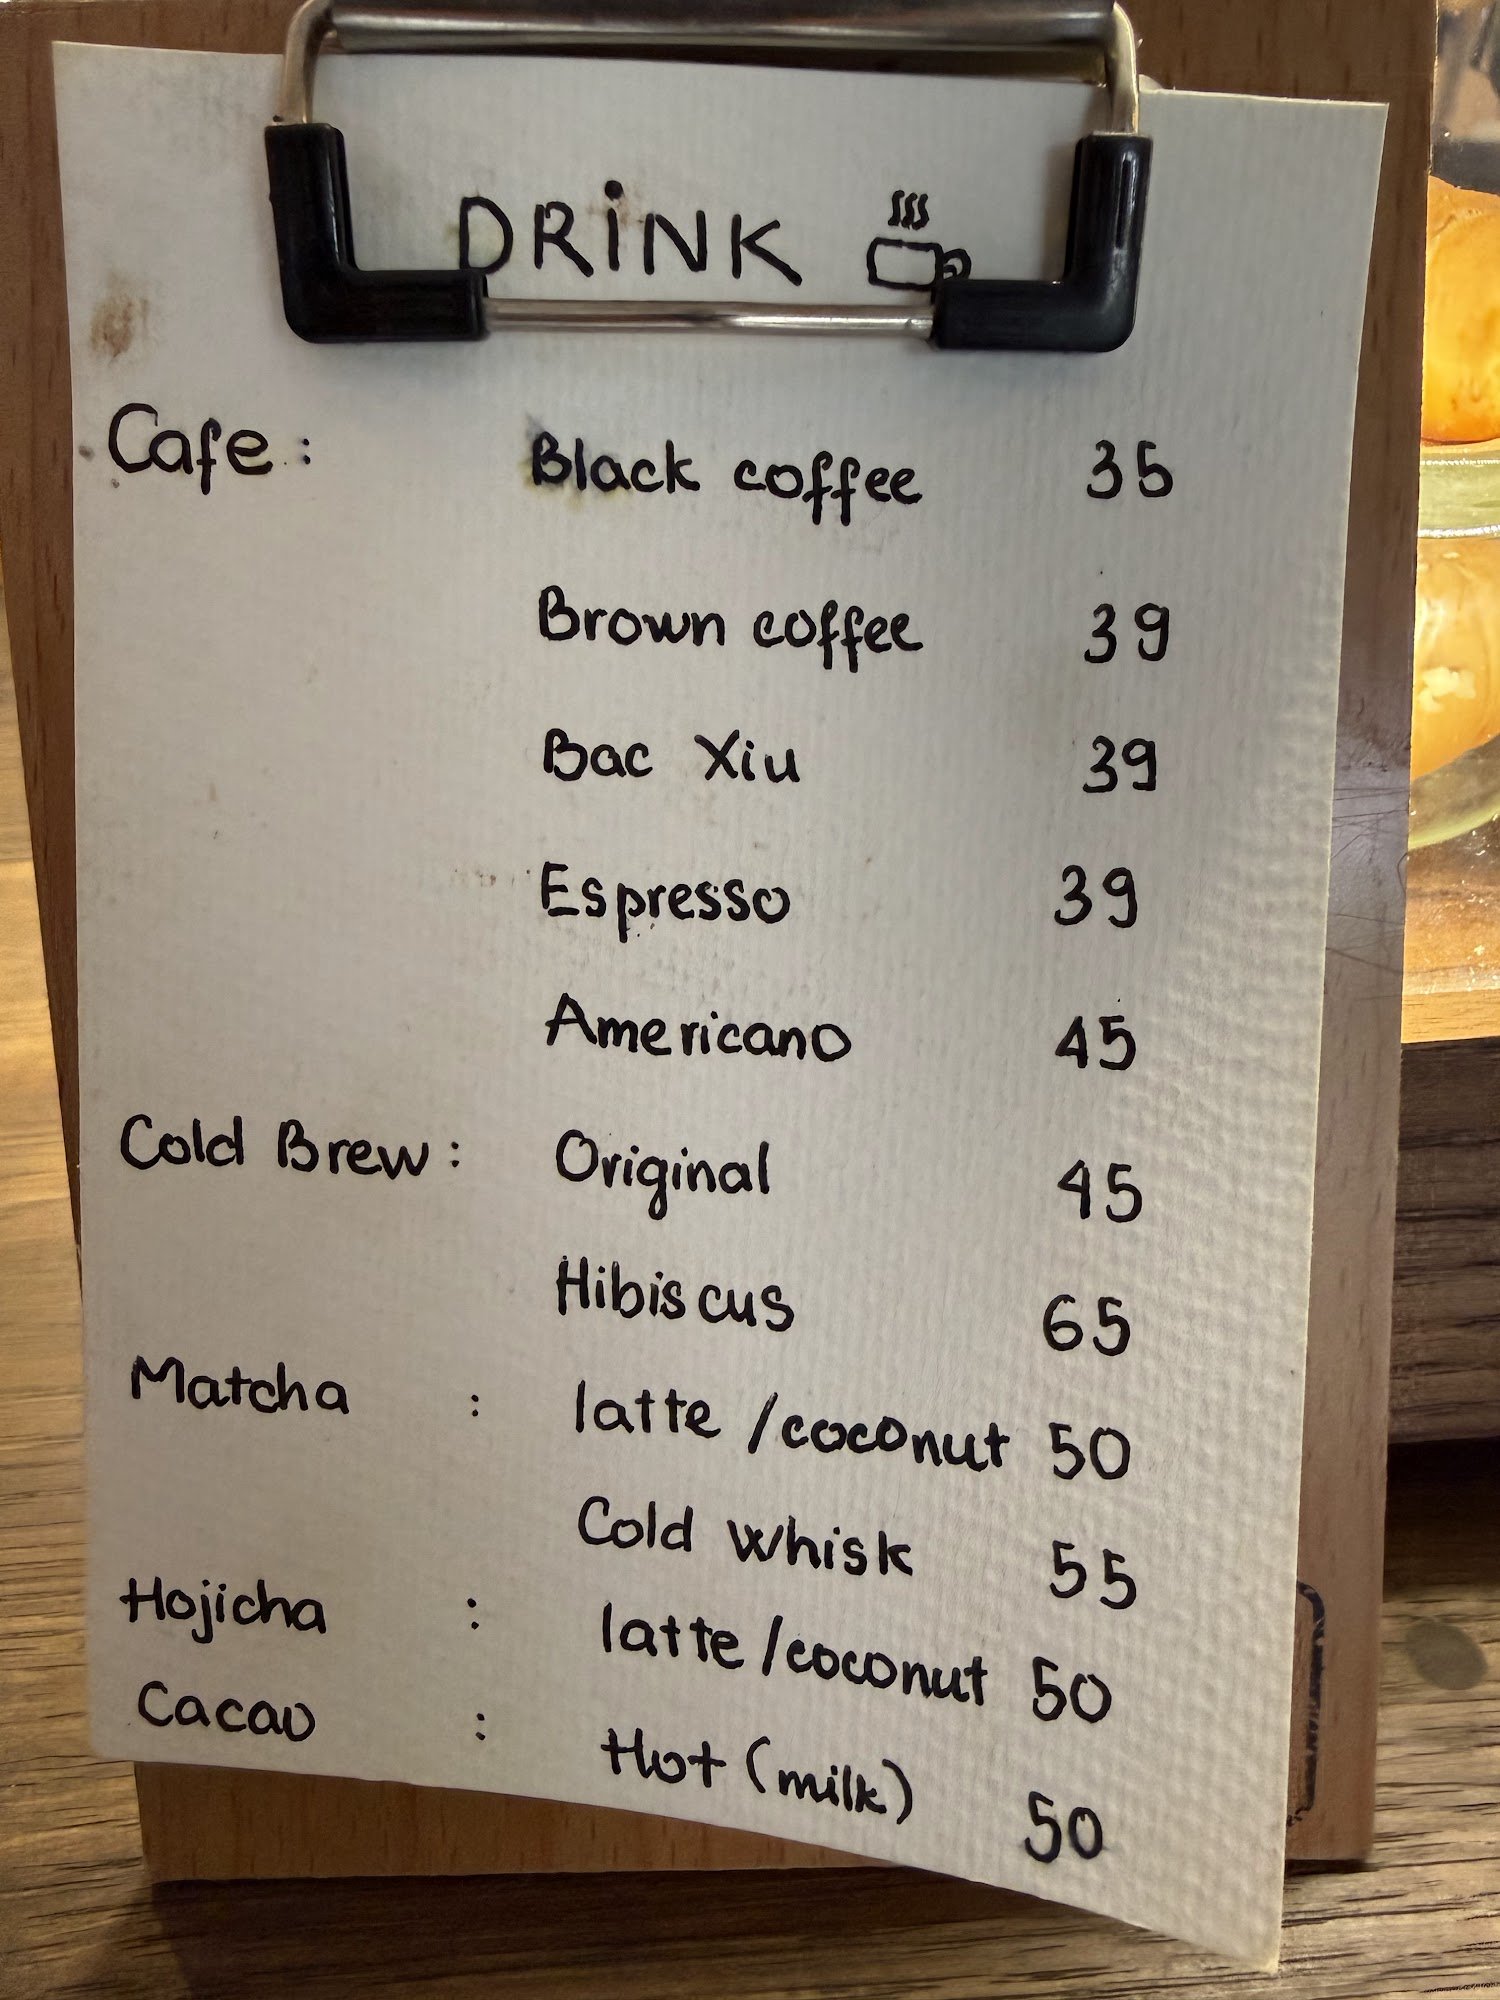 DRiNK
Cafe : Black coffee 35
Brown coffee 39
Bac Xiu 39
Espresso 39
Americano 45
Cold Brew : Original 45
Hibiscus 65
Matcha : latte /coconut 50
Cold whisk 55
Hojicha : latte /coconut 50
Cacao : Hot (milk) 50